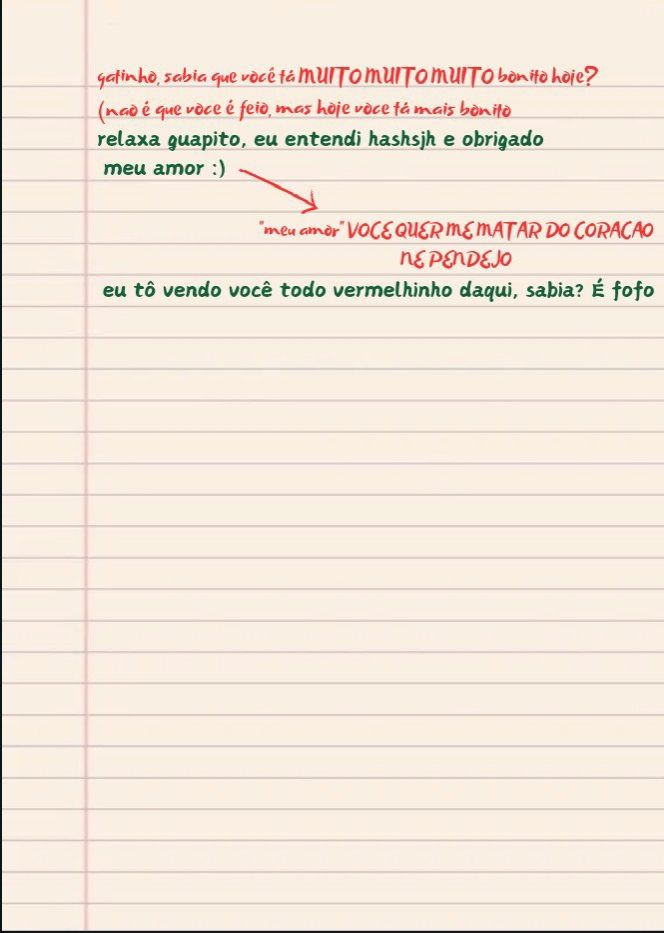 gatinho, sabia que você tá MUITO MUITO MUITO bonito hoje?
(nao é que voce é feio, mas hoje voce tá mais bonito
relaxa guapito, eu entendi hashsjh e obrigado
meu amor :)
"meu amor" VOCE QUER ME MATAR DO CORACAO
NE PENDEJO
eu tô vendo você todo vermelhinho daqui, sabia? É fofo